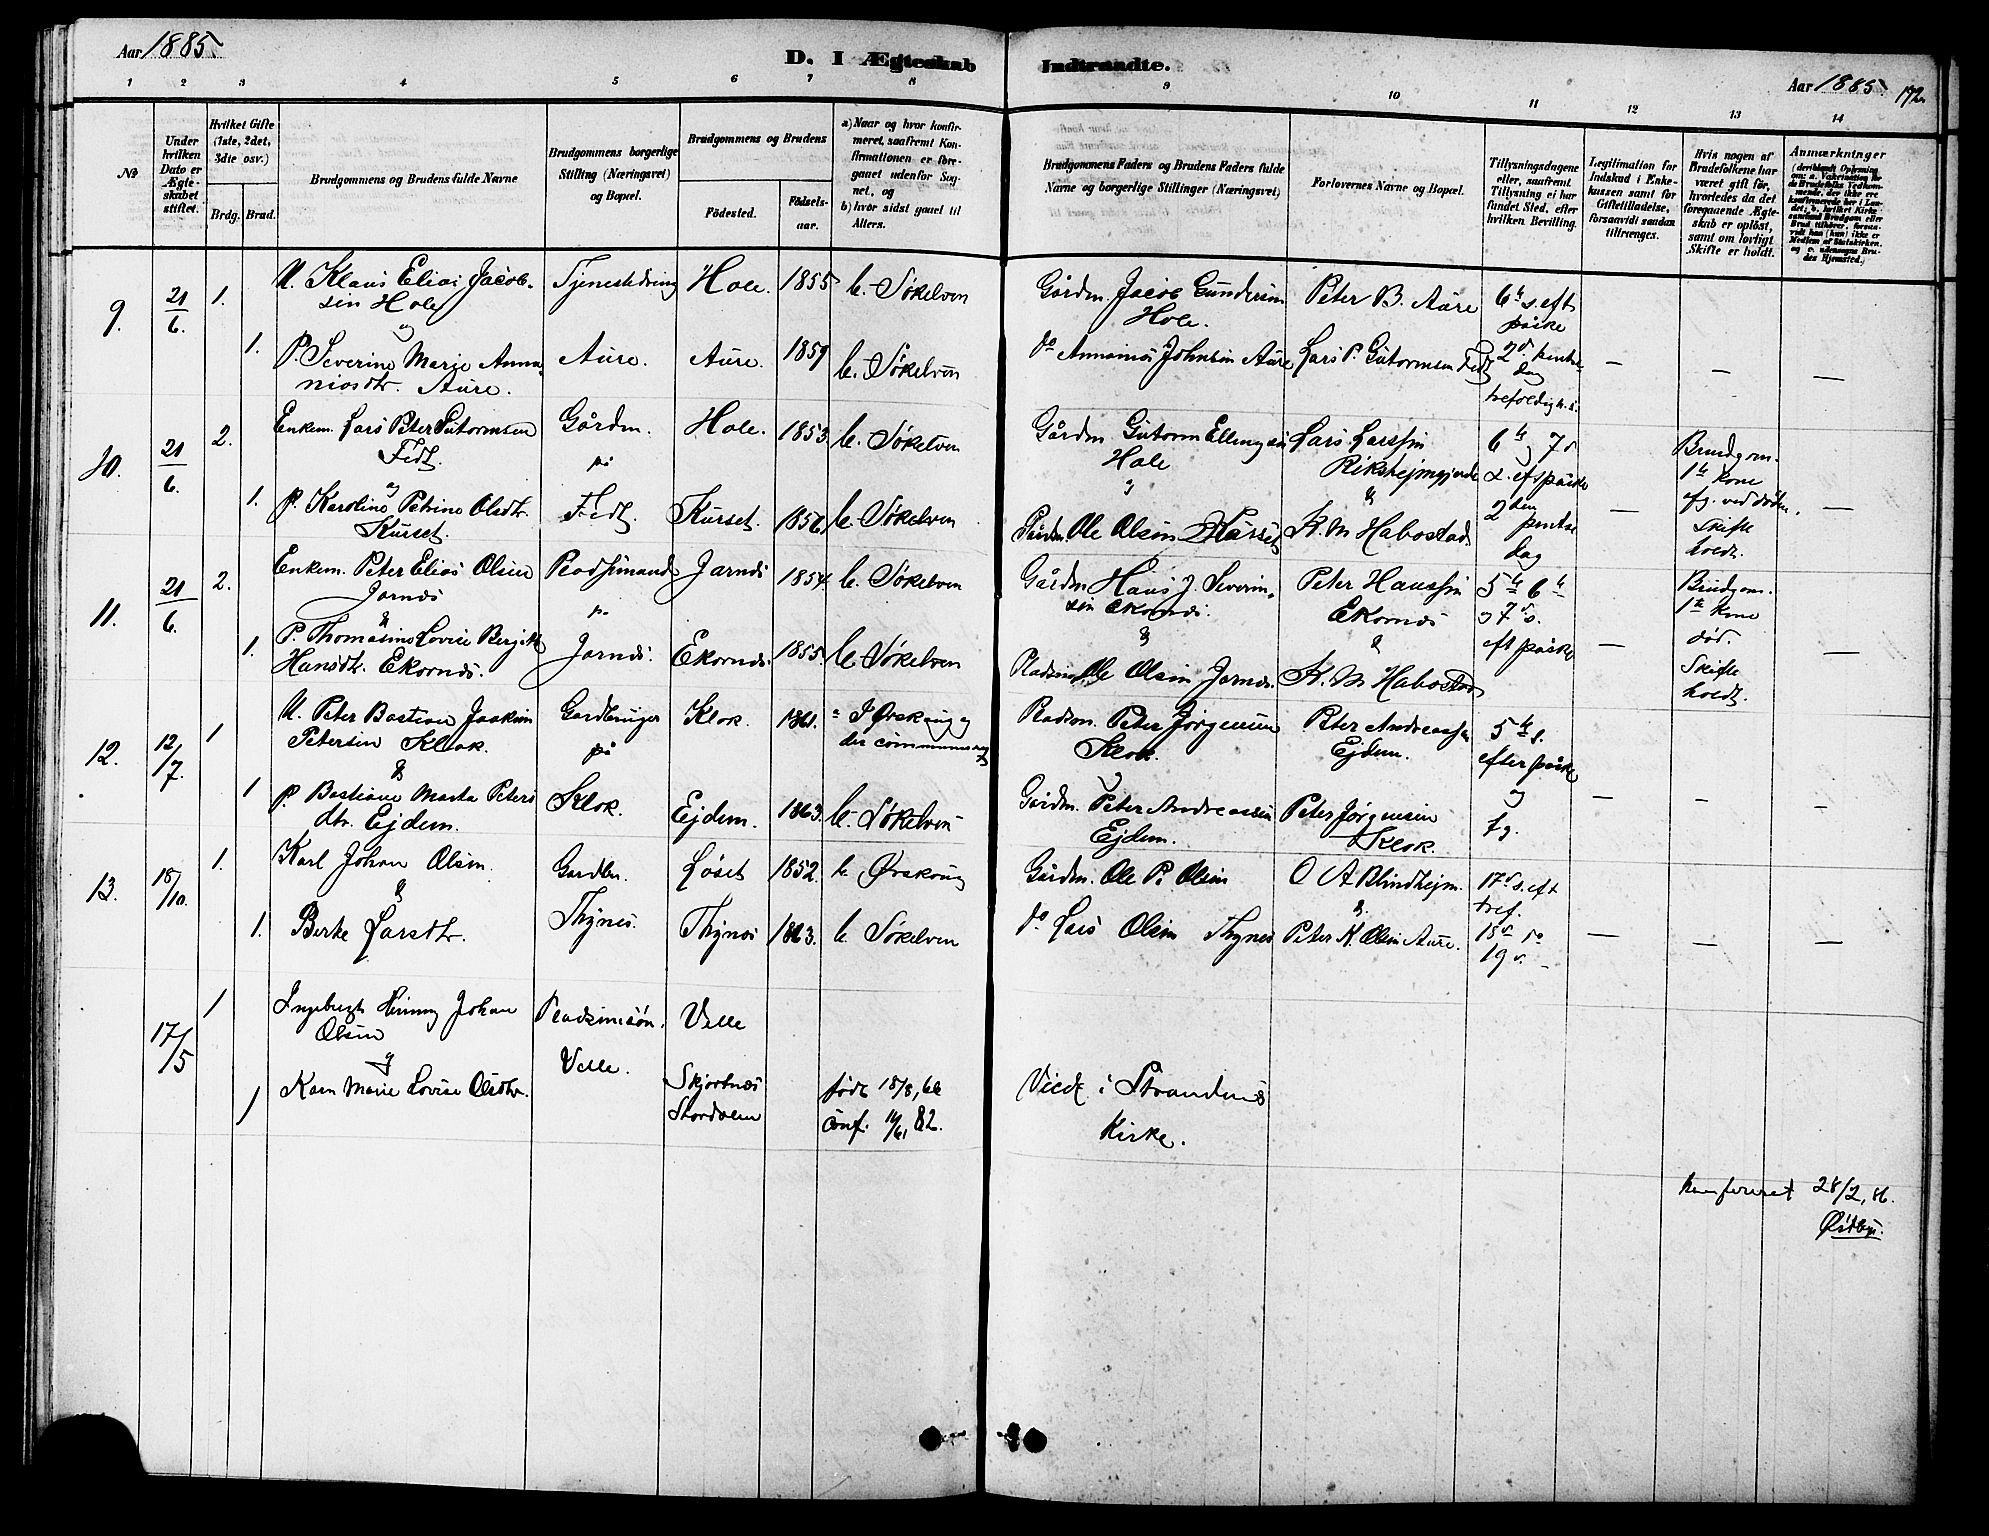 Aar 1885.
D. I Ægteskab Indtraadte.
Aar 1885. 172.
1 2 3 4 5 6 7 8 9 10 11 12 13 14
No
Under hvilken Dato er Ægteskabet stiftet.
Hvilket Gifte (1ste, 2det, 3die osv.)
Brdg. Brud.
Brudgommens og Brudens fulde Navne
Brudgommens borgerlige Stilling (Næringsvei) og Bopæl.
Brudgommens og Brudens
Fødested. Fødselsaar.
a) Naar og hvor konfirmeret, saafremt Konfirmationen er foregaaet udenfor Sognet, og
b) hvor sidst gaaet til Alters.
Brudgommens Faders og Brudens Faders fulde Navne og borgerlige Stillinger (Næringsvei)
Forlovernes Navne og Bopæl.
Tillysningsdagene eller, saafremt Tillysning ei har fundet Sted, efter hvilken Bevilling.
Legitimation for Indskud i Enkekassen samt for Giftetilladelse, forsaavidt saadan tiltrænges.
Hvis nogen af Brudefolkene har været gift før, hvorledes da det foregaaende Ægteskab er opløst, samt om lovligt Skifte er holdt.
Anmærkninger
9. 21/6. 1. U. Klaus Elias Jacobsen Hole Hole. 1855 b. Søkelven
Gårdm. Jacob Gundersen Hole. Peter B. Aure 6te s. eft påske
og
1. P. Severine Marie Annaniasdtr. Aure. Aure. Aure. 1859 b. Søkelven
do Annanias Johnsen Aure Lars P. Gutormsen Fedt 2d. pintsedag — — —
10. 21/6 2. Enkem. Lars Peter Gutormsen Fedt. Gårdm. på Hole. 1853. b. Søkelven
Gårdm. Gutorm Ellingsen Hole Lars Larssen 6te og 7d s. eft påske
Brudgom. 1te kone afg. ved døden. Skifte holdt.
og
1. p. Karoline Petrine Olsdtr. Kurset. Fedt. Kurset. b. Søkelven
& Gårdm. Ole Olsen Kurset & K. M Habostad. 2den pintsedag — —
11. 21/6. 2. Enkem. Peter Elias Olsen Jarnes Pladsmand på Jarnes 1854. b. Søkelven
Gårdm. Hans J. Severinsen Ekornes. Peter Hanssen Ekornes 5te 6te og 7d s. eft påske
Brudgom. 1te kone død. Skifte holdt.
&
1. P. Thomasine Lovise Hansdtr. Ekornes. Jarnes. Ekornes. 1855. b. Søkelven
& Pladsm. Ole Olsen Jarnes. & K. M Habostad — —
12. 12/7. 1 U. Peter Bastian Joakim Petersen Klok. Gardbruger på Klok. 1861. a I Ørskoug og der
Pladsm. Peter Jørgensen Klok. Peter Andreassen Ejdem. 5te s. efter påske og fg.
&
1 p. Bastiane Marta Petersdtr. Ejdem. Klok. Ejdem. 1863. b. Søkelven
Gårdm. Peter Andreassen Ejdem. Peter Jørgensen Klok. — — —
13. 18/10. 1. Karl Johan Olsen. Gardbr. Løset 1852. b. Ørskoug
Gårdm. Ole P. Olsen O A Blindhejm. 17d s. eft tref.
&
1. Berte Larsdtr. Thynes. Thynes 1863. b. Søkelven
do Lars Olsen Thynes & Peter K. Olsen Aure. 19 s. — — —
17/5 1 Johan Olsen Velle. Velle
og
1 Karn Marie Lovise Olsdtr. Skjortnes Stordalen født 18/8, 66 conf. 82.
Viede i Strandens Kirke.
28/2, 86.
Østbye.